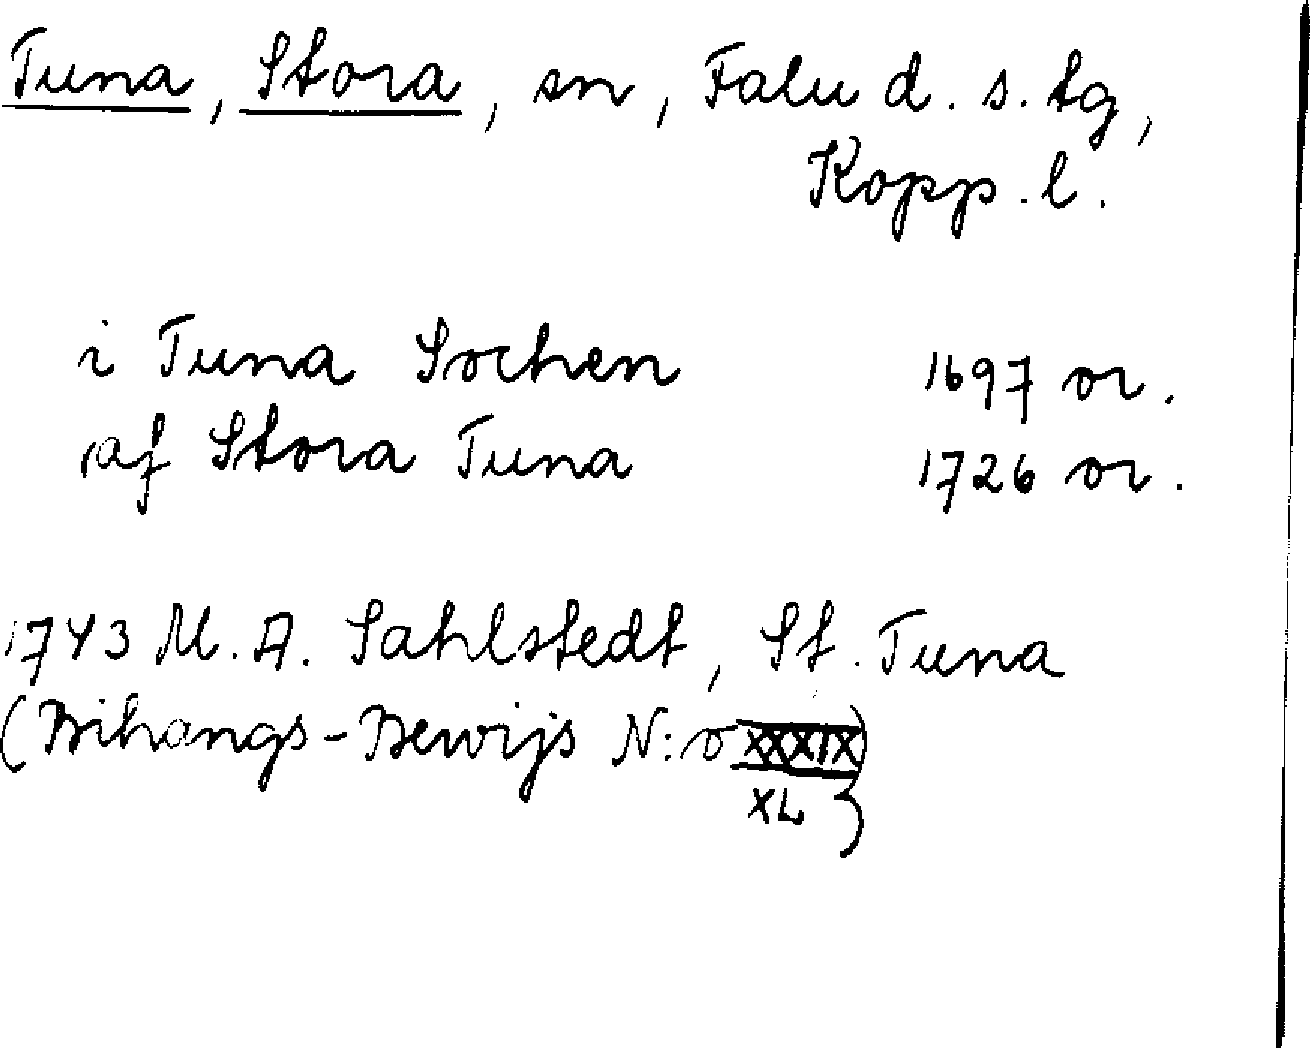 Tuna, Stora, sn, Falu d. s. tg,
Kopp. l.
i Tuna Sochen 1697 or.
af Stora Tuna 1726 or.
1743 M. A. Sahlstedt, St. Tuna
(Bihangs-Bewijs N:o XXXIX)
XL)